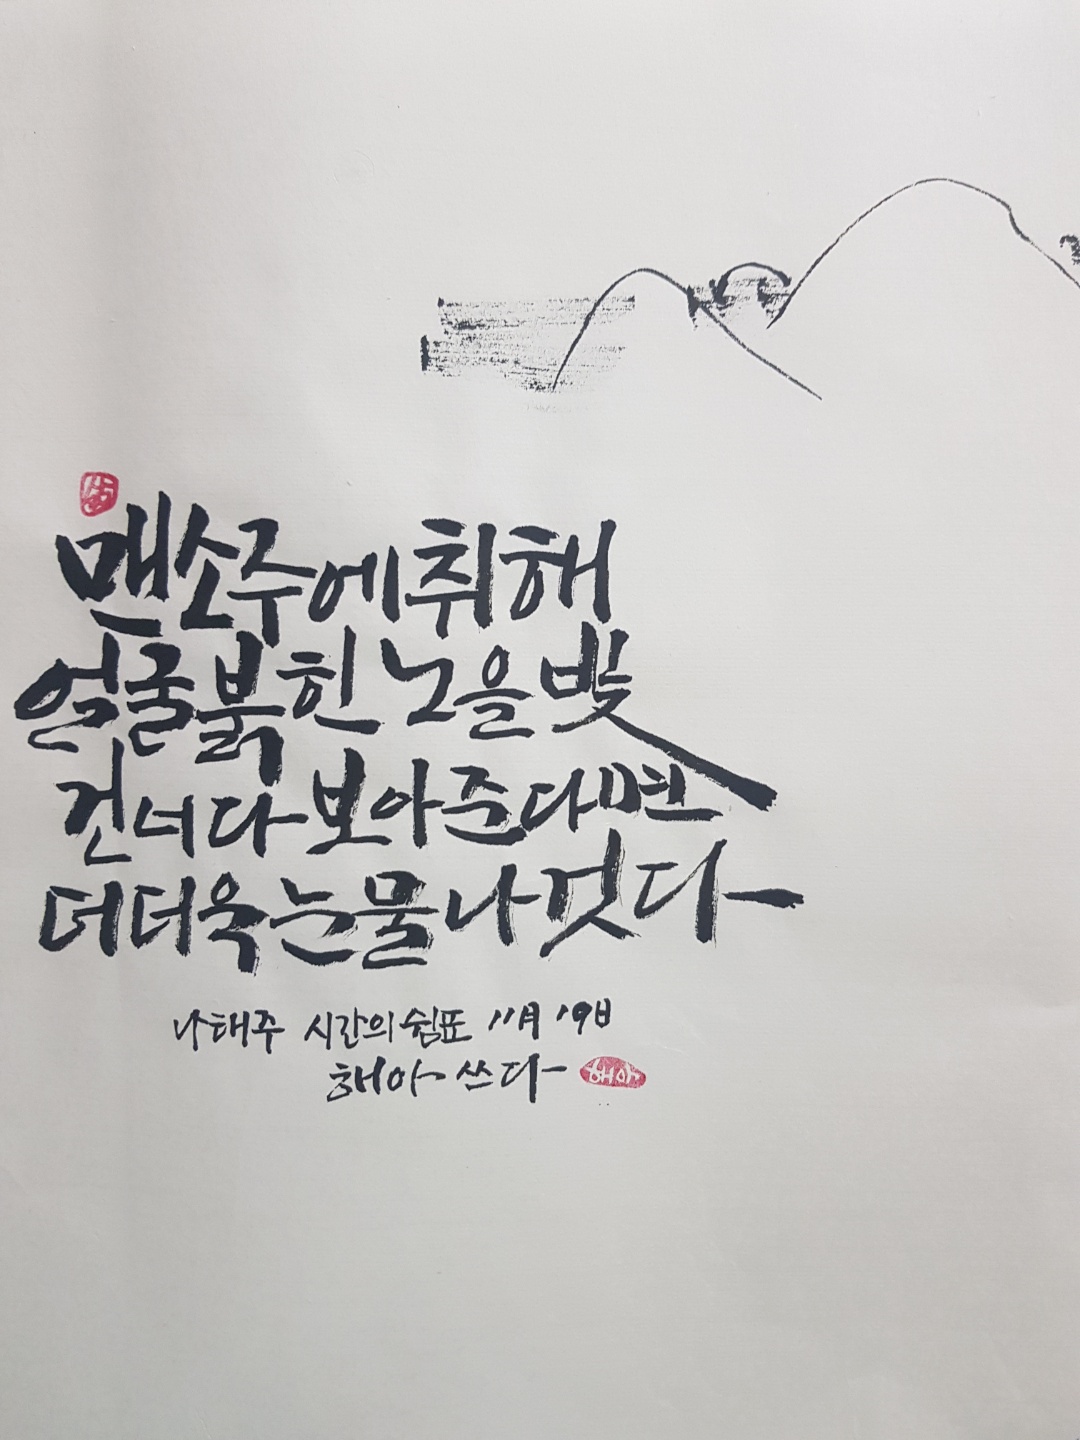 맨소주에 취해
얼굴 붉힌 노을빛
건너다 보아준다면
더더욱 눈물나것다
나태주 시간의 쉼표 11月 19日
해아 쓰다 해아